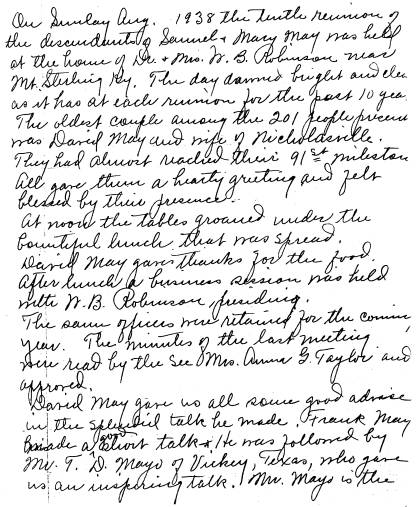 On Sunday Aug. 1938 the tenth reunion of
the descendants of Samuel & Mary May was held
at the home of Dr. & Mrs. W. B. Robinson near
Mt. Sterling Ky. The day dawned bright and clea
as it has at each reunion for the past 10 yea
The oldest couple among the 201 people presen
was David May and wife of Nicholasville.
They had almost reached their 91st mileston
All gave them a hearty greeting and felt
blessed by their presence.
At noon the tables groaned under the
bountiful lunch that was spread.
David May gave thanks for the food.
After lunch a business session was held
with W. B. Robinson, presiding.
The same offices were retained for the comin
year. The minutes of the last meeting
were read by the Sec Mrs. Anna G. Taylor and
approved.
David May gave us all some good advise
in the splendid talk he made. Frank May
made a good short talk & He was followed by
Mr. T. D. Mayo of Vickey, Texas, who gave
us an inspiring talk. Mr. Mayo is the